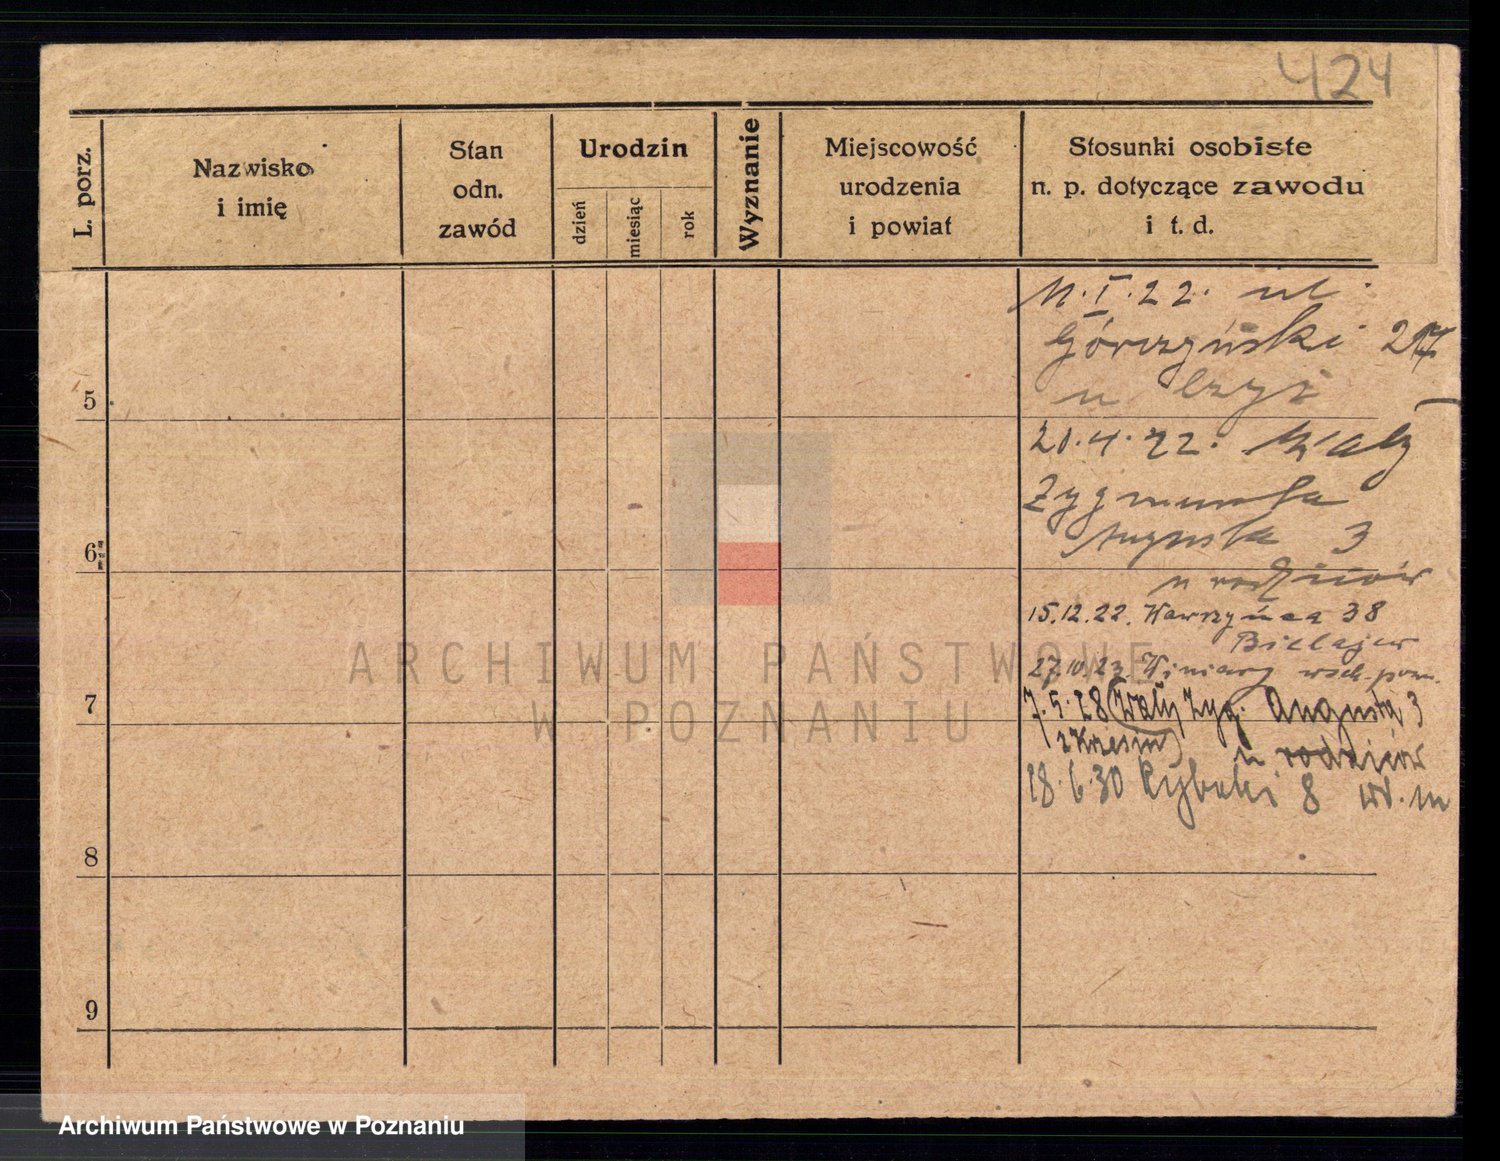 424
L. porz.
Nazwisko
i imię
Stan
odn.
zawód
Urodzin
dzień
miesiąc
rok
Wyznanie
Miejscowość
urodzenia
i powiat
Stosunki osobiste
n. p. dotyczące zawodu
i t. d.
11.I.22. ul.
Górczyński
u
5
21.4.22. Wały
Zygmunta
Augusta 3
6
u rodziców
15.12.22. Wawrzyńca 38
27.10.23. Winiary
7
7.5.28 (Wały Zyg. Augusta 3
u rodziców
18.6.30 Rybaki 8
8
9
ARCHIWUM PAŃSTWOWE
W POZNANIU
Archiwum Państwowe w Poznaniu